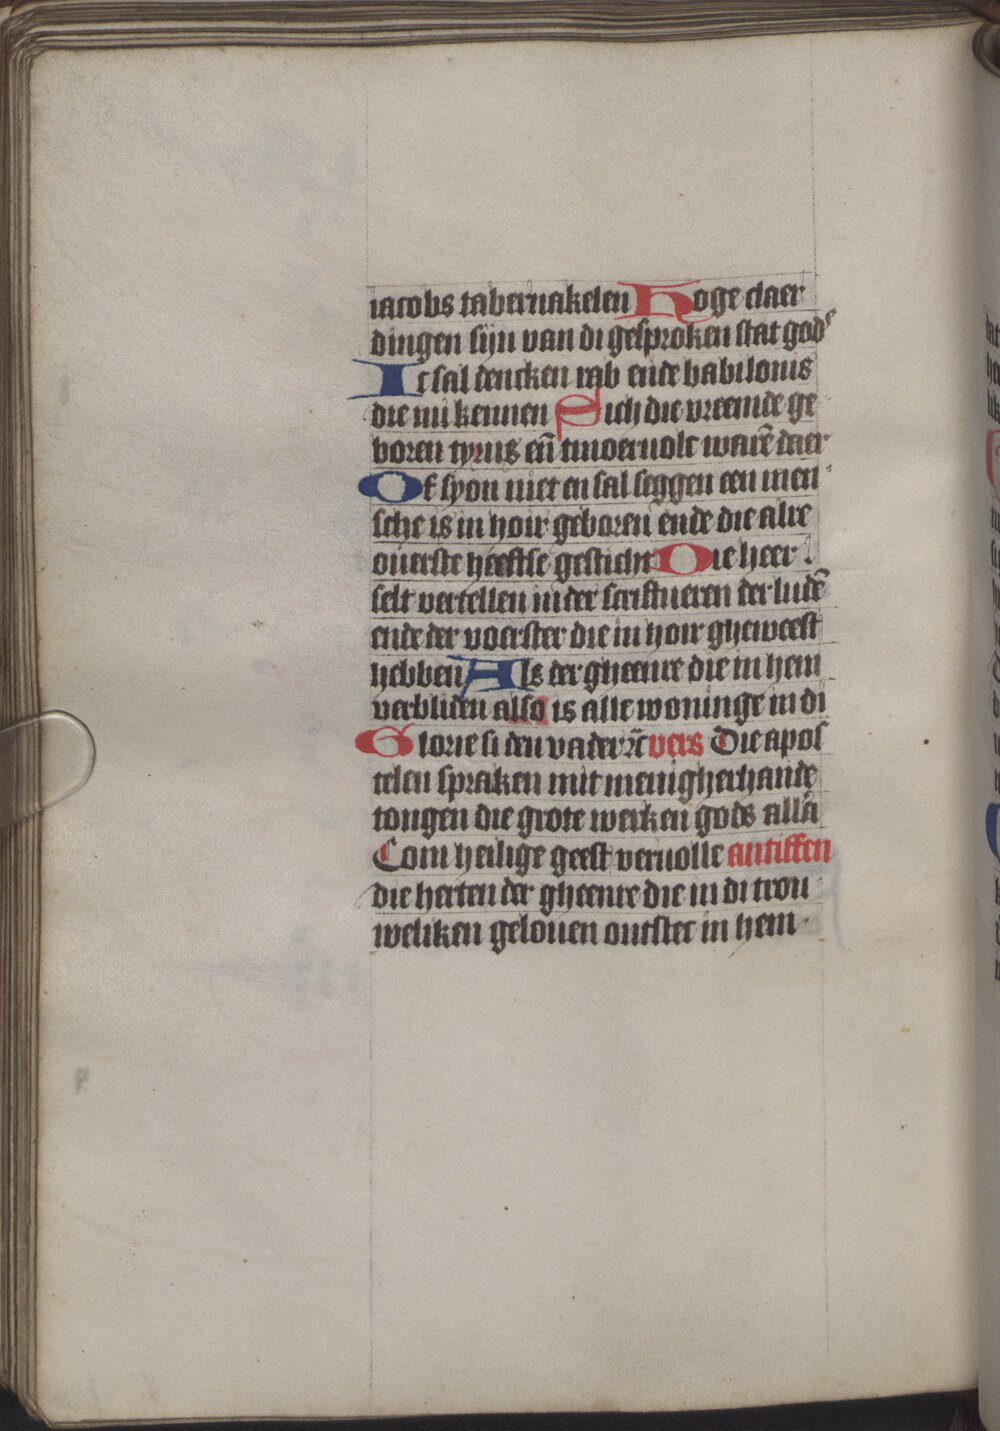 iacobs tabernakelen Hoge daer
dingen sijn van di gesproken stat gods
Ic sal dencken rab ende babilonis
die mi kennen Sich die vreemde ge
boren tyrus eñ moervolc warē daer
Of syon niet en sal seggen een men
sche is in hoir geboren ende die alre
ouerste heeftse gesticht Die heer
selt vertellen in der scriftueren der ludē
ende der voerster die in hoir gheweest
hebben Als der gheenre die in hem
verbliden also is alle woninge in di
Glorie si den vader ⁊c vers Die apos
telen spraken mit menigherhande
tongen die grote werken gods allā
Com heilige geest vervolle antiffen
die herten der gheenre die in di trou
weliken gelouen ontstect in hem